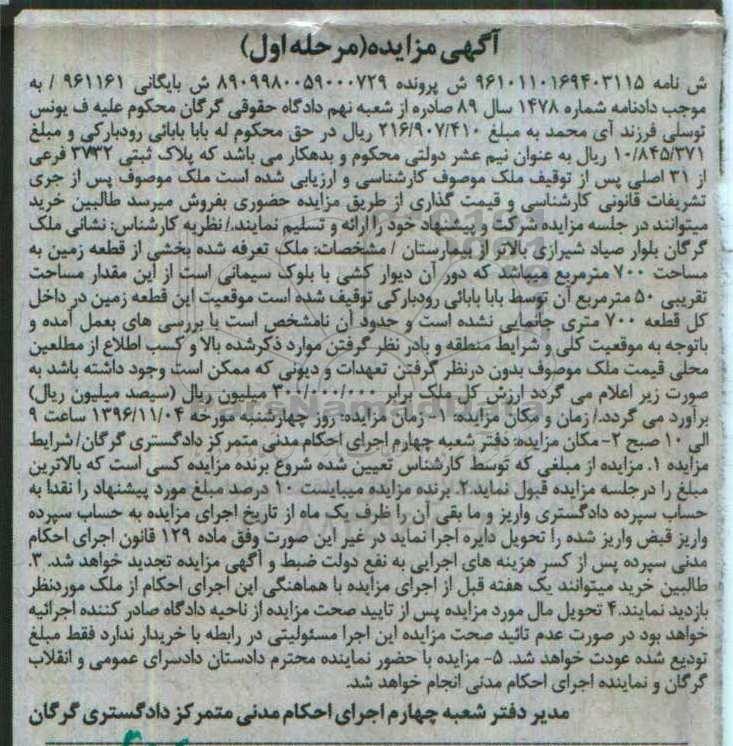 آگهی مزایده(مرحله اول)
ش نامه ۹۶۱۰۱۱۰۱۶۹۴۰۳۱۱۵ ش پرونده ۸۹۰۹۹۸۰۰۵۹۰۰۰۷۲۹ ش بایگانی ۹۶۱۱۶۱ / به
موجب دادنامه شماره ۱۴۷۸ سال ۸۹ صادره از شعبه نهم دادگاه حقوقی گرگان محکوم علیه ف یونس
توسلی فرزند آی محمد به مبلغ ۲۱۶/۹۰۷/۴۱۰ ریال در حق محکوم له بابا بابائی رودبارکی و مبلغ
۱۰/۸۴۵/۳۷۱ ریال به عنوان نیم عشر دولتی محکوم و بدهکار می باشد که پلاک ثبتی ۳۷۳۲ فرعی
از ۳۱ اصلی پس از توقیف ملک موصوف کارشناسی و ارزیابی شده است ملک موصوف پس از جری
تشریفات قانونی کارشناسی و قیمت گذاری از طریق مزایده حضوری بفروش میرسد طالبین خرید
میتوانند در جلسه مزایده شرکت و پیشنهاد خود را ارائه و تسلیم نمایند./نظریه کارشناس: نشانی ملک
گرگان بلوار صیاد شیرازی بالاتر از بیمارستان / مشخصات: ملک تعرفه شده بخشی از قطعه زمین به
مساحت ۷۰۰ مترمربع میباشد که دور آن دیوار کشی با بلوک سیمانی است از این مقدار مساحت
تقریبی ۵۰ مترمربع آن توسط بابا بابائی رودبارکی توقیف شده است موقعیت این قطعه زمین در داخل
کل قطعه ۷۰۰ متری جانمایی نشده است و حدود آن نامشخص است با بررسی های بعمل آمده و
باتوجه به موقعیت کلی و شرایط منطقه و بادر نظر گرفتن موارد ذکرشده بالا و کسب اطلاع از مطلعین
محلی قیمت ملک موصوف بدون درنظر گرفتن تعهدات و دیونی که ممکن است وجود داشته باشد به
صورت زیر اعلام می گردد ارزش کل ملک برابر ۳۰۰/۰۰۰/۰۰۰ میلیون ریال (سیصد میلیون ریال)
برآورد می گردد./ زمان و مکان مزایده: ۱- زمان مزایده: روز چهارشنبه مورخه ۱۳۹۶/۱۱/۰۴ ساعت ۹
الی ۱۰ صبح ۲- مکان مزایده: دفتر شعبه چهارم اجرای احکام مدنی متمرکز دادگستری گرگان/ شرایط
مزایده ۱. مزایده از مبلغی که توسط کارشناس تعیین شده شروع برنده مزایده کسی است که بالاترین
مبلغ را درجلسه مزایده قبول نماید.۲. برنده مزایده میبایست ۱۰ درصد مبلغ مورد پیشنهاد را نقدا به
حساب سپرده دادگستری واریز و ما بقی آن را ظرف یک ماه از تاریخ اجرای مزایده به حساب سپرده
واریز قبض واریز شده را تحویل دایره اجرا نماید در غیر این صورت وفق ماده ۱۲۹ قانون اجرای احکام
مدنی سپرده پس از کسر هزینه های اجرایی به نفع دولت ضبط و آگهی مزایده تجدید خواهد شد. ۳.
طالبین خرید میتوانند یک هفته قبل از اجرای مزایده با هماهنگی این اجرای احکام از ملک موردنظر
بازدید نمایند.۴ تحویل مال مورد مزایده پس از تایید صحت مزایده از ناحیه دادگاه صادر کننده اجرائیه
خواهد بود در صورت عدم تائید صحت مزایده این اجرا مسئولیتی در رابطه با خریدار ندارد فقط مبلغ
تودیع شده عودت خواهد شد. ۵- مزایده با حضور نماینده محترم دادستان دادسرای عمومی و انقلاب
گرگان و نماینده اجرای احکام مدنی انجام خواهد شد.
مدیر دفتر شعبه چهارم اجرای احکام مدنی متمرکز دادگستری گرگان